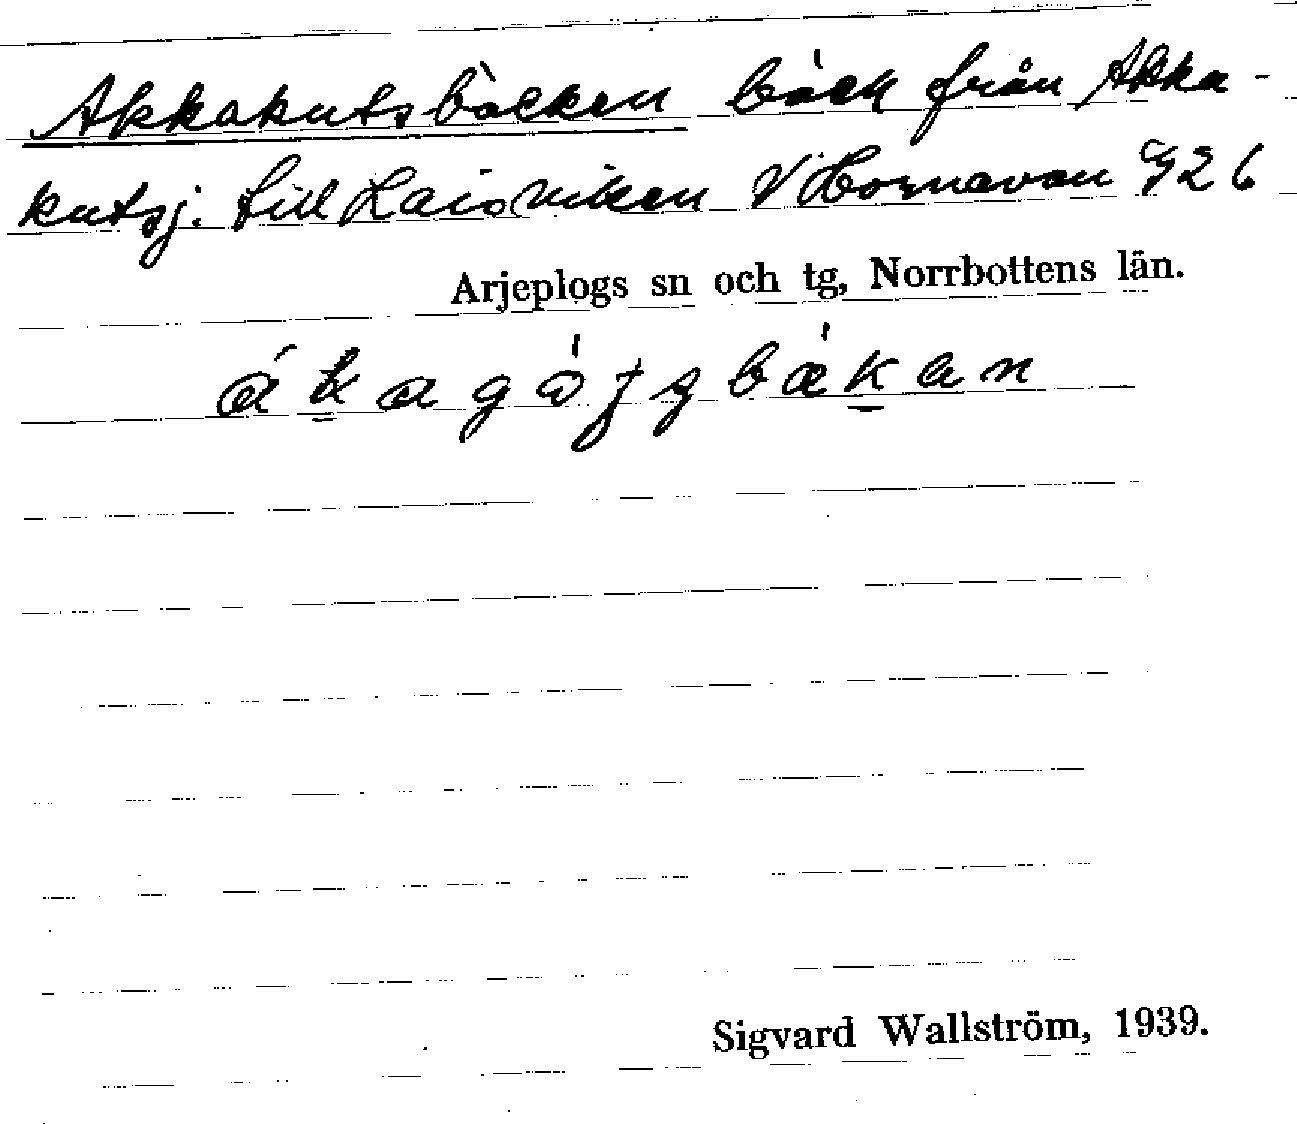 Akkakutsbäcken bäck från Akka-
kutsj. till Laisviken V Hornavan 26
Arjeplogs sn och tg, Norrbottens län.
Sigvard Wallström, 1939.